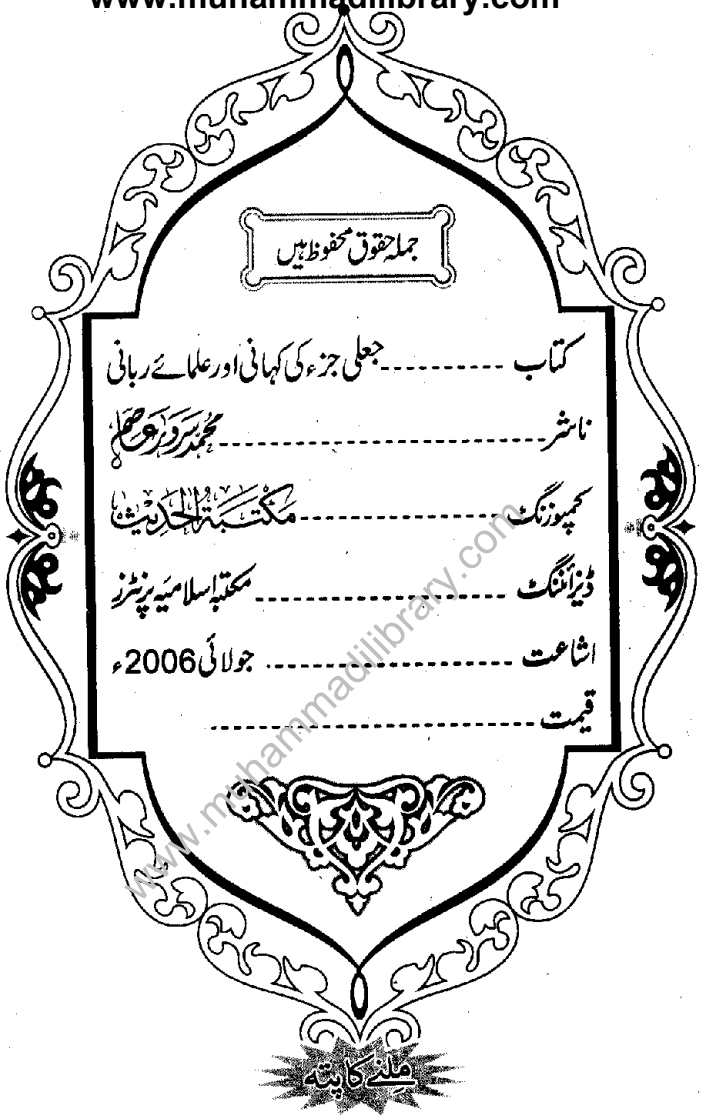 www.muhammadilibrary.com
جملہ حقوق محفوظ ہیں
کتاب ---------- جعلی جزء کی کہانی اور علمائے ربانی
ناشر ---------- محمد سرور عاصم
کمپوزنگ ---------- مکتبۃ الحدیث
ڈیزائننگ ---------- مکتبہ اسلامیہ پرنٹرز
اشاعت ---------- جولائی 2006ء
قیمت ----------
www.muhammadilibrary.com
ملنے کا پتہ